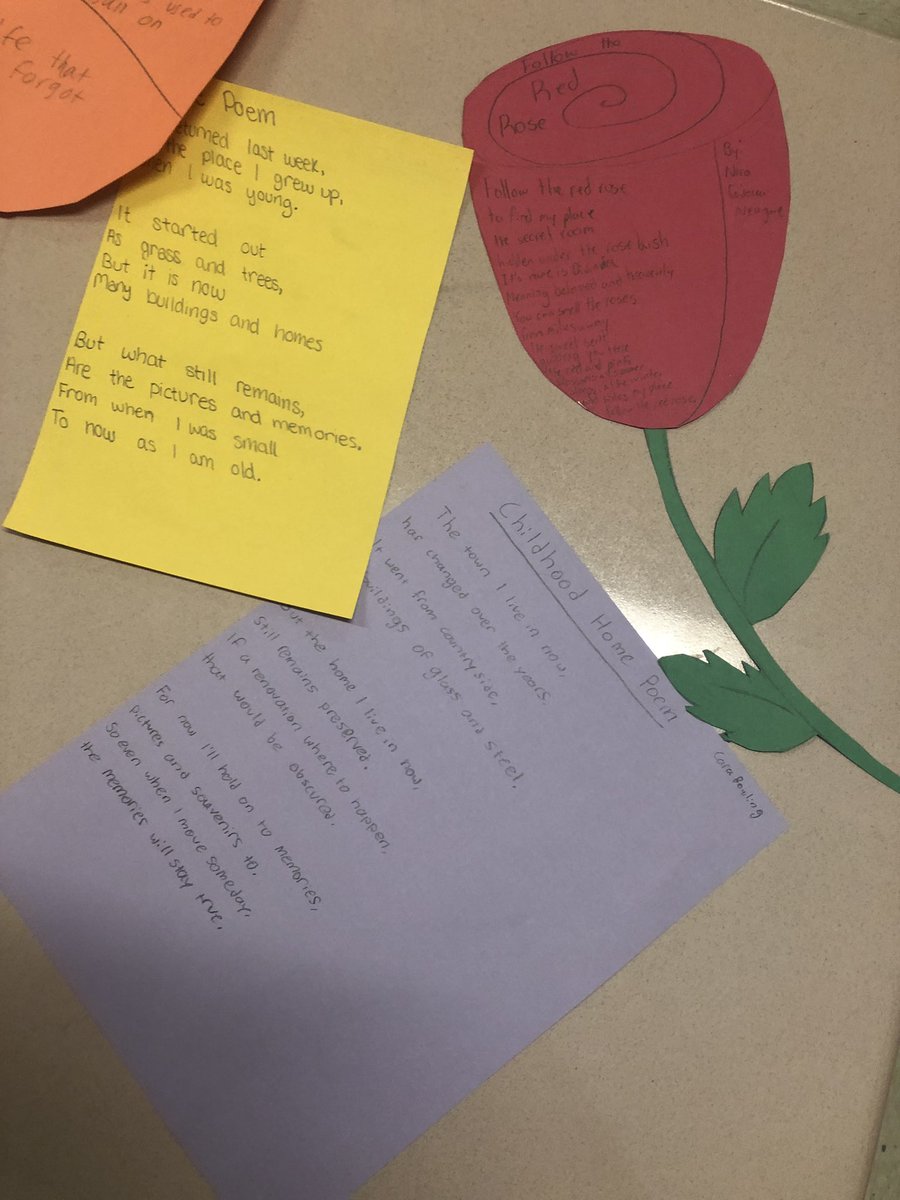 used to
on
fe that
forgot
Poem
eturned last week,
the place I grew up,
en I was young.
It started out
As grass and trees,
But it is now
Many buildings and homes
But what still remains,
Are the pictures and memories.
From when I was small
To now as I am old.
Follow the
Red
Rose
By:
Nico
Follow the red rose
to find my place
the secret room
hidden under the rose bush
It's name is
Meaning beloved and heavenly
You can smell the roses
from miles away
the sweet scent
guiding you there
the red and pink
winter
my place
follow the red rose
Childhood Home Poem
Cara Bowling
The town I live in now,
has changed over the years.
It went from countryside,
buildings of glass and steel.
but the home I live in now,
still remains preserved.
If a renovation where to happen,
that would be obscured.
For now I'll hold on to memories,
pictures and souvenirs to.
So even when I move someday,
the memories will stay true.